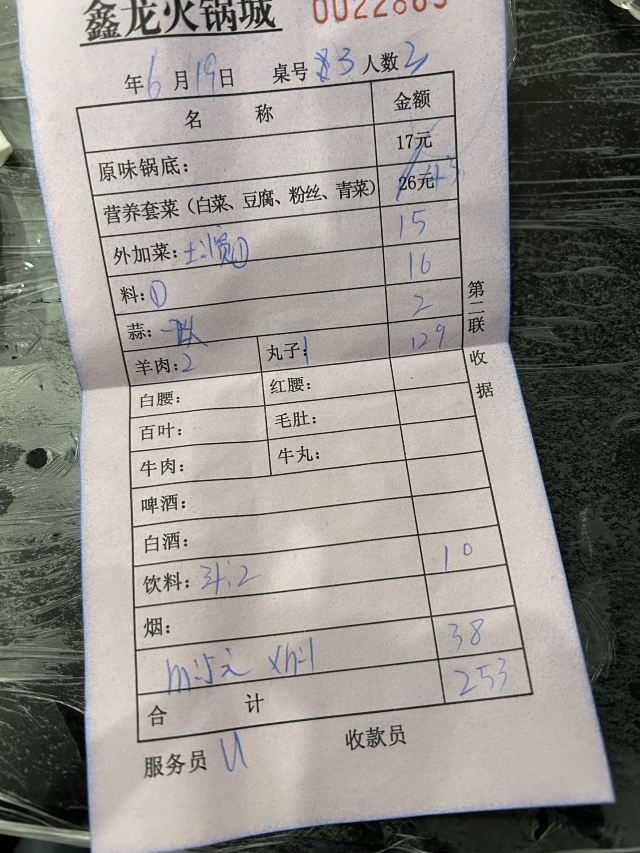 鑫龙火锅城 0022885
年6月19日 桌号 3 人数2
名 称 金额
原味锅底: 17元
营养套菜(白菜、豆腐、粉丝、青菜) 26元 43
外加菜:土 15
料:① 16
蒜:一 2
羊肉:2 丸子:1 129
白腰: 红腰:
百叶: 毛肚:
牛肉: 牛丸:
啤酒:
白酒:
饮料: 2 10
烟:
38
合 计 253
服务员 收款员
第二联收据